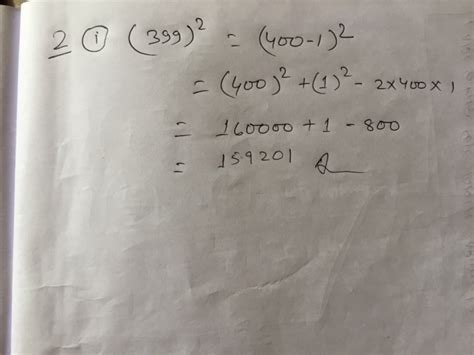 2 (i) (399)² = (400-1)²
= (400)² + (1)² - 2×400×1
= 160000 + 1 - 800
= 159201